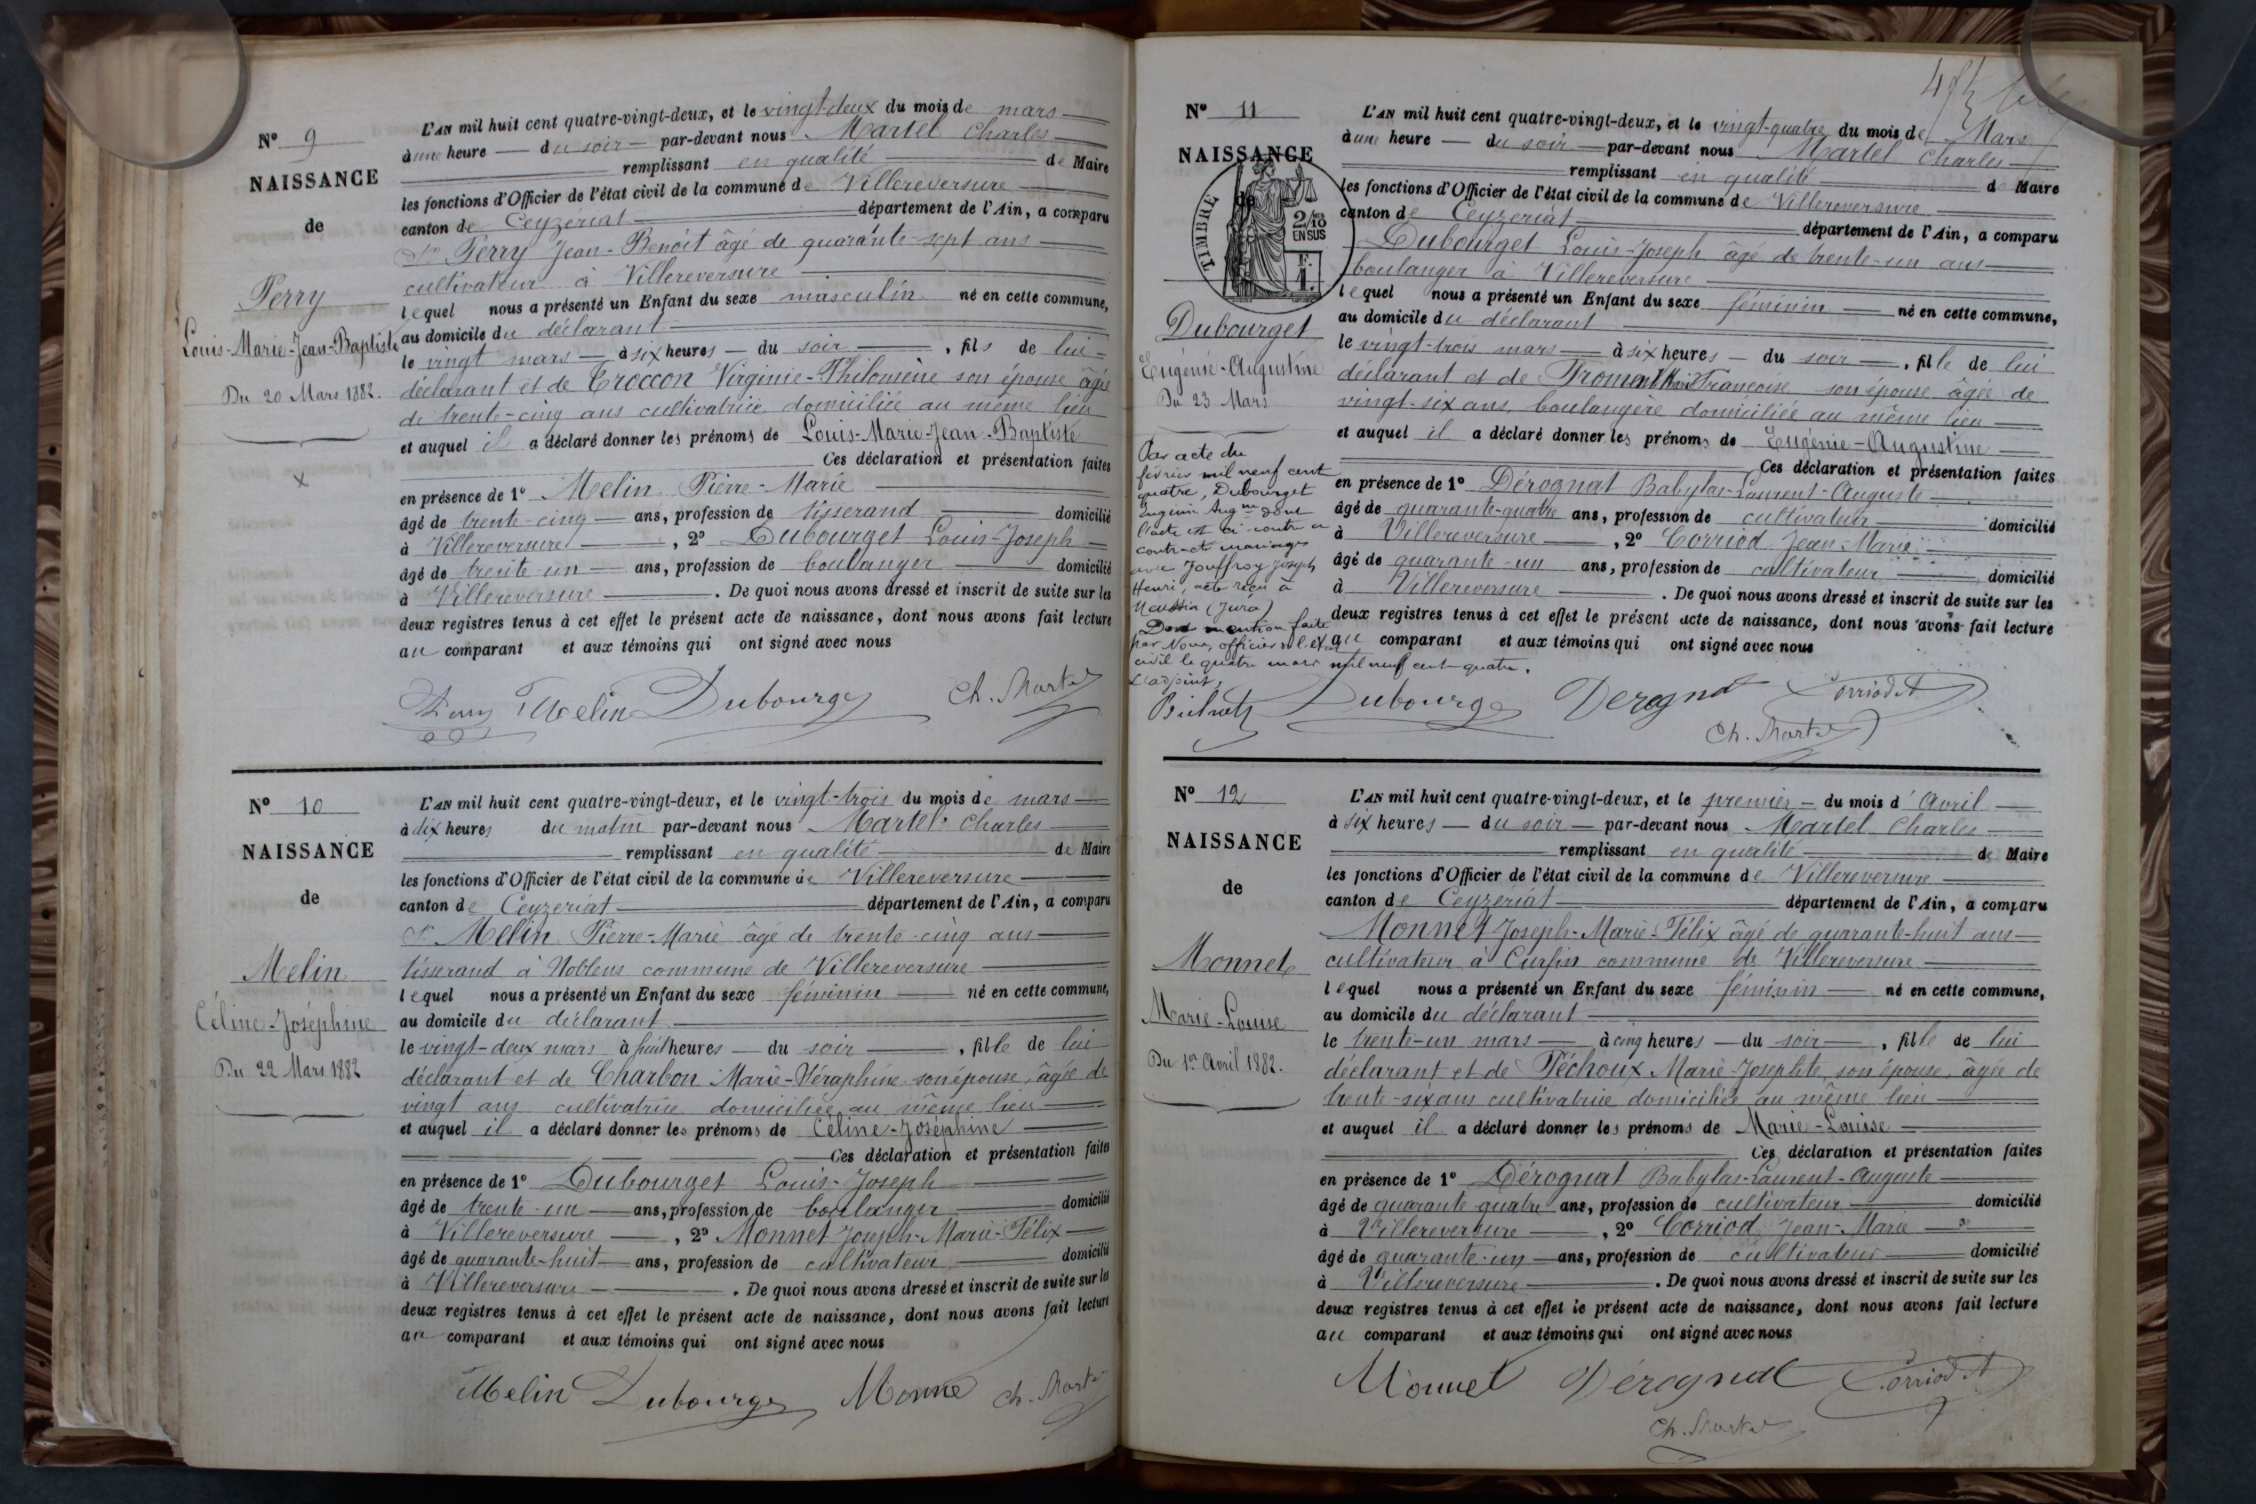 Nº 9
NAISSANCE
de
Perry
Louis-Marie-Jean-Baptiste
Du 20 Mars 1882.
L'AN mil huit cent quatre-vingt-deux, et le vingt-deux du mois de mars
à une heure du soir par-devant nous Martel Charles
remplissant en qualité de Maire
les fonctions d'Officier de l'état civil de la commune de Villereversure
canton de Ceyzériat département de l'Ain, a comparu
Sr Perry Jean-Benoit âgé de quarante-sept ans
cultivateur à Villereversure
lequel nous a présenté un Enfant du sexe masculin né en cette commune,
au domicile du déclarant
le vingt mars à six heures du soir, fils de lui
déclarant et de Croccon Virginie-Philomène son épouse âgée
de trente-cinq ans cultivatrice domiciliée au même lieu
et auquel il a déclaré donner les prénoms de Louis-Marie-Jean-Baptiste
Ces déclaration et présentation faites
en présence de 1º Melin Pierre-Marie
âgé de trente-cinq ans, profession de tisserand domicilié
à Villereversure, 2º Dubourget Louis-Joseph
âgé de trente-un ans, profession de boulanger domicilié
à Villereversure. De quoi nous avons dressé et inscrit de suite sur les
deux registres tenus à cet effet le présent acte de naissance, dont nous avons fait lecture
au comparant et aux témoins qui ont signé avec nous
Perry Melin Dubourget Ch. Martel
Nº 10
NAISSANCE
de
Melin
Céline-Joséphine
Du 22 Mars 1882
L'AN mil huit cent quatre-vingt-deux, et le vingt-trois du mois de mars
à dix heures du matin par-devant nous Martel Charles
remplissant en qualité de Maire
les fonctions d'Officier de l'état civil de la commune de Villereversure
canton de Ceyzériat département de l'Ain, a comparu
Sr Melin Pierre-Marie âgé de trente-cinq ans
tisserand à Noblens commune de Villereversure
lequel nous a présenté un Enfant du sexe féminin né en cette commune,
au domicile du déclarant
le vingt-deux mars à huit heures du soir, fille de lui
déclarant et de Charbon Marie-Séraphine son épouse, âgée de
vingt ans cultivatrice domiciliée au même lieu
et auquel il a déclaré donner les prénoms de Céline-Joséphine
Ces déclaration et présentation faites
en présence de 1º Dubourget Louis-Joseph
âgé de trente-un ans, profession de boulanger domicilié
à Villereversure, 2º Monnet Joseph-Marie-Félix
âgé de quarante-huit ans, profession de cultivateur domicilié
à Villereversure. De quoi nous avons dressé et inscrit de suite sur les
deux registres tenus à cet effet le présent acte de naissance, dont nous avons fait lecture
au comparant et aux témoins qui ont signé avec nous
Melin Dubourget Monne Ch. Martel
Nº 11
NAISSANCE
de
TIMBRE
2/10 EN SUS
F. 1.
Dubourget
Eugénie-Augustine
Du 23 Mars
Par acte du
février mil neuf cent
quatre, Dubourget
Eugénie Aug.ne dont
l'acte est ci-contre a
contracté mariage
avec Jouffroy Joseph
Henri, acte reçu à
(Jura)
Dont mention faite
par Nous, officier de l'état
civil le quatre mars mil neuf cent quatre.
L'adjoint,
L'AN mil huit cent quatre-vingt-deux, et le vingt-quatre du mois de Mars
à une heure du soir par-devant nous Martel Charles
remplissant en qualité de Maire
les fonctions d'Officier de l'état civil de la commune de Villereversure
canton de Ceyzériat département de l'Ain, a comparu
Dubourget Louis-Joseph âgé de trente-un ans
boulanger à Villereversure
lequel nous a présenté un Enfant du sexe féminin né en cette commune,
au domicile du déclarant
le vingt-trois mars à six heures du soir, fille de lui
déclarant et de Froment Marie Françoise son épouse âgée de
vingt-six ans, boulangère domiciliée au même lieu
et auquel il a déclaré donner les prénoms de Eugénie-Augustine
Ces déclaration et présentation faites
en présence de 1º Dérognat Babylas-Laurent-Auguste
âgé de quarante-quatre ans, profession de cultivateur domicilié
à Villereversure, 2º Corriod Jean-Marie
âgé de quarante-un ans, profession de cultivateur domicilié
à Villereversure. De quoi nous avons dressé et inscrit de suite sur les
deux registres tenus à cet effet le présent acte de naissance, dont nous avons fait lecture
au comparant et aux témoins qui ont signé avec nous
Dubourget Derognat Corriod
Ch. Martel
Nº 12
NAISSANCE
de
Monnet
Marie-Louise
Du 1er Avril 1882.
L'AN mil huit cent quatre-vingt-deux, et le premier du mois d'Avril
à six heures du soir par-devant nous Martel Charles
remplissant en qualité de Maire
les fonctions d'Officier de l'état civil de la commune de Villereversure
canton de Ceyzériat département de l'Ain, a comparu
Monnet Joseph-Marie-Félix âgé de quarante-huit ans
cultivateur à Curfin commune de Villereversure
lequel nous a présenté un Enfant du sexe féminin né en cette commune,
au domicile du déclarant
le trente-un mars à cinq heures du soir, fille de lui
déclarant et de Péchoux Marie-Josephte, son épouse, âgée de
trente-six ans cultivatrice domiciliée au même lieu
et auquel il a déclaré donner les prénoms de Marie-Louise
Ces déclaration et présentation faites
en présence de 1º Dérognat Babylas-Laurent-Auguste
âgé de quarante quatre ans, profession de cultivateur domicilié
à Villereversure, 2º Corriod Jean-Marie
âgé de quarante-un ans, profession de cultivateur domicilié
à Villereversure. De quoi nous avons dressé et inscrit de suite sur les
deux registres tenus à cet effet le présent acte de naissance, dont nous avons fait lecture
au comparant et aux témoins qui ont signé avec nous
Monnet Dérognat Corriod
Ch. Martel